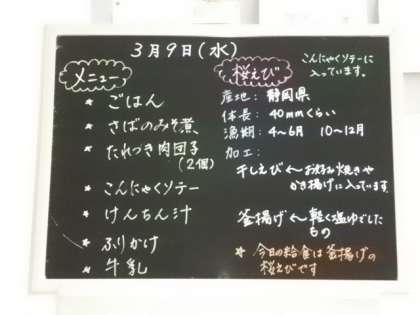 3月9日(水)
メニュー
★ ごはん
★ さばのみそ煮
★ たれつき肉団子
(2個)
★ こんにゃくソテー
★ けんちん汁
★ ふりかけ
★ 牛乳
桜えび
こんにゃくソテーに
入っています。
産地: 静岡県
体長: 40mmくらい
漁期: 4~6月 10~12月
加工:
干しえび←お好み焼きや
かき揚げに入っています。
釜揚げ←軽く塩ゆでした
もの
★ 今日の給食は釜揚げの
桜えびです